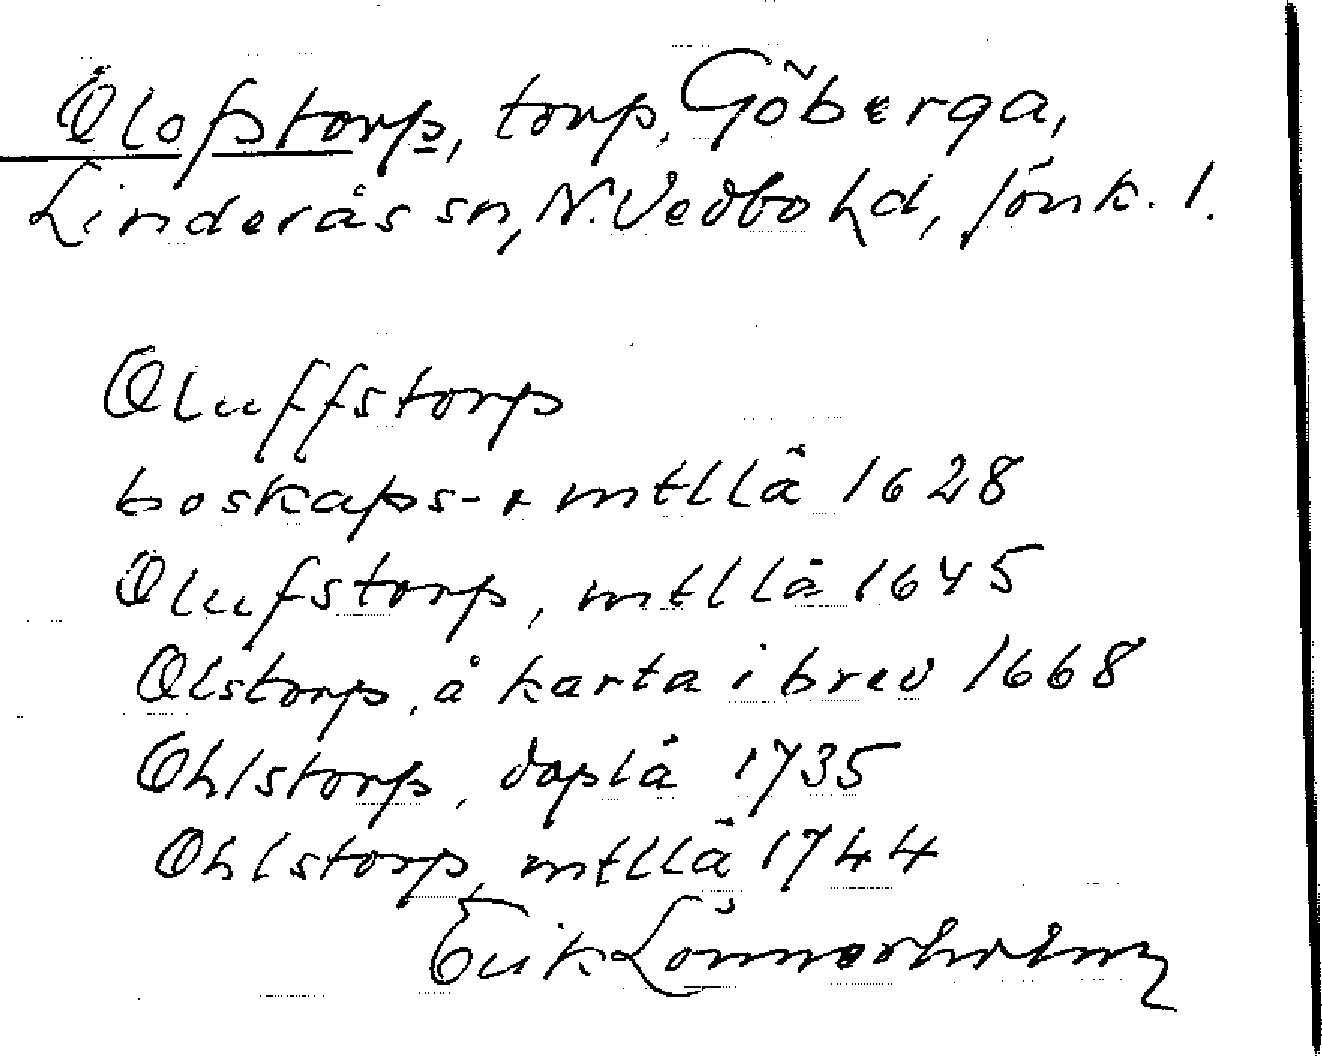 Olofstorp, torp, Göberga,
Linderås sn, N. Vedbo hd, Jönk. l.
Oluffstorp
boskaps- o mtllä 1628
Olufstorp, mtllä 1645
Olstorp, å karta i brev 1668
Ohlstorp, doplä 1735
Ohlstorp, mtllä 1744
Erik Lönnerholm